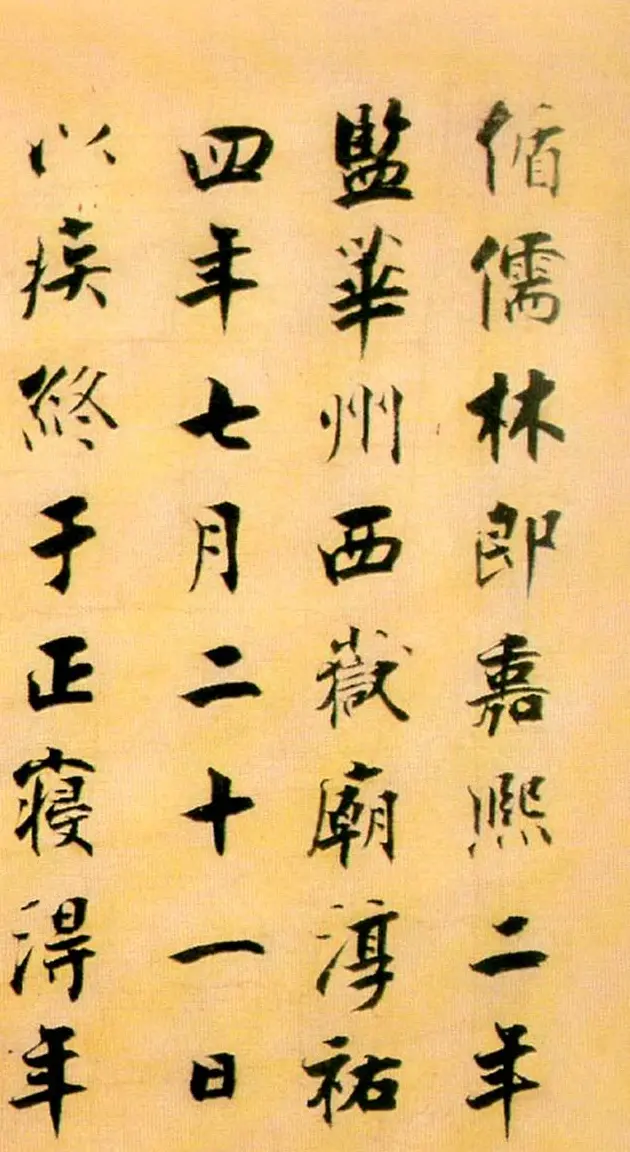 循儒林郎嘉熙二年
監華州西嶽廟淳祐
四年七月二十一日
以疾終于正寢得年